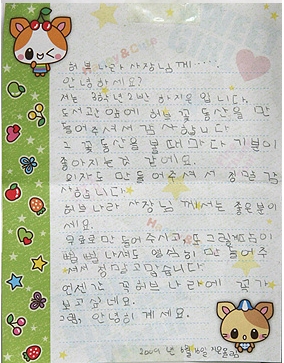 허브 나라 사장님께.....
안녕하세요?
저는 3학년 2반 하지윤입니다.
도서관 앞에 허브 꽃 동산을 만
들어주셔서 감사합니다
그 꽃동산을 볼때마다 기분이
좋아지는것 같에요.
의자도 만들어주셔서 정말 감
사합니다
허브 나라 사장님께서는 좋은분이
세요.
무료로 만들어주시고, 또 그렇게
뻘뻘 나셔도 열심히 만들어주
셔서 정말 고맙습니다.
언젠간 꼭 허브 나라에 꼭 가
보고 싶네요.
그럼, 안녕히 계세요.
2009년